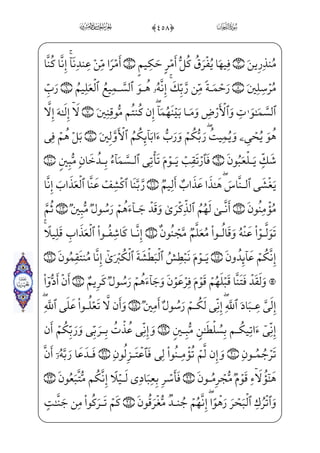 ﴿٤٥٨﴾
مُنذِرِينَ ۝ فِيهَا يُفْرَقُ كُلُّ أَمْرٍ حَكِيمٍ ۝ أَمْرًا مِّنْ عِندِنَآ ۚ إِنَّا كُنَّا
مُرْسِلِينَ ۝ رَحْمَةً مِّن رَّبِّكَ ۚ إِنَّهُۥ هُوَ ٱلسَّمِيعُ ٱلْعَلِيمُ ۝ رَبِّ
ٱلسَّمَٰوَٰتِ وَٱلْأَرْضِ وَمَا بَيْنَهُمَآ ۖ إِن كُنتُم مُّوقِنِينَ ۝ لَآ إِلَٰهَ إِلَّا
هُوَ يُحْىِۦ وَيُمِيتُ ۖ رَبُّكُمْ وَرَبُّ ءَابَآئِكُمُ ٱلْأَوَّلِينَ ۝ بَلْ هُمْ فِى
شَكٍّ يَلْعَبُونَ ۝ فَٱرْتَقِبْ يَوْمَ تَأْتِى ٱلسَّمَآءُ بِدُخَانٍ مُّبِينٍ ۝
يَغْشَى ٱلنَّاسَ ۖ هَٰذَا عَذَابٌ أَلِيمٌ ۝ رَّبَّنَا ٱكْشِفْ عَنَّا ٱلْعَذَابَ إِنَّا
مُؤْمِنُونَ ۝ أَنَّىٰ لَهُمُ ٱلذِّكْرَىٰ وَقَدْ جَآءَهُمْ رَسُولٌ مُّبِينٌ ۝ ثُمَّ
تَوَلَّوْا۟ عَنْهُ وَقَالُوا۟ مُعَلَّمٌ مَّجْنُونٌ ۝ إِنَّا كَاشِفُوا۟ ٱلْعَذَابِ قَلِيلًا ۚ
إِنَّكُمْ عَآئِدُونَ ۝ يَوْمَ نَبْطِشُ ٱلْبَطْشَةَ ٱلْكُبْرَىٰٓ إِنَّا مُنتَقِمُونَ ۝
۞ وَلَقَدْ فَتَنَّا قَبْلَهُمْ قَوْمَ فِرْعَوْنَ وَجَآءَهُمْ رَسُولٌ كَرِيمٌ ۝ أَنْ أَدُّوٓا۟
إِلَىَّ عِبَادَ ٱللَّهِ ۖ إِنِّى لَكُمْ رَسُولٌ أَمِينٌ ۝ وَأَن لَّا تَعْلُوا۟ عَلَى ٱللَّهِ ۖ
إِنِّىٓ ءَاتِيكُم بِسُلْطَٰنٍ مُّبِينٍ ۝ وَإِنِّى عُذْتُ بِرَبِّى وَرَبِّكُمْ أَن
تَرْجُمُونِ ۝ وَإِن لَّمْ تُؤْمِنُوا۟ لِى فَٱعْتَزِلُونِ ۝ فَدَعَا رَبَّهُۥٓ أَنَّ
هَٰٓؤُلَآءِ قَوْمٌ مُّجْرِمُونَ ۝ فَأَسْرِ بِعِبَادِى لَيْلًا إِنَّكُم مُّتَّبَعُونَ ۝
وَٱتْرُكِ ٱلْبَحْرَ رَهْوًا ۖ إِنَّهُمْ جُندٌ مُّغْرَقُونَ ۝ كَمْ تَرَكُوا۟ مِن جَنَّٰتٍ